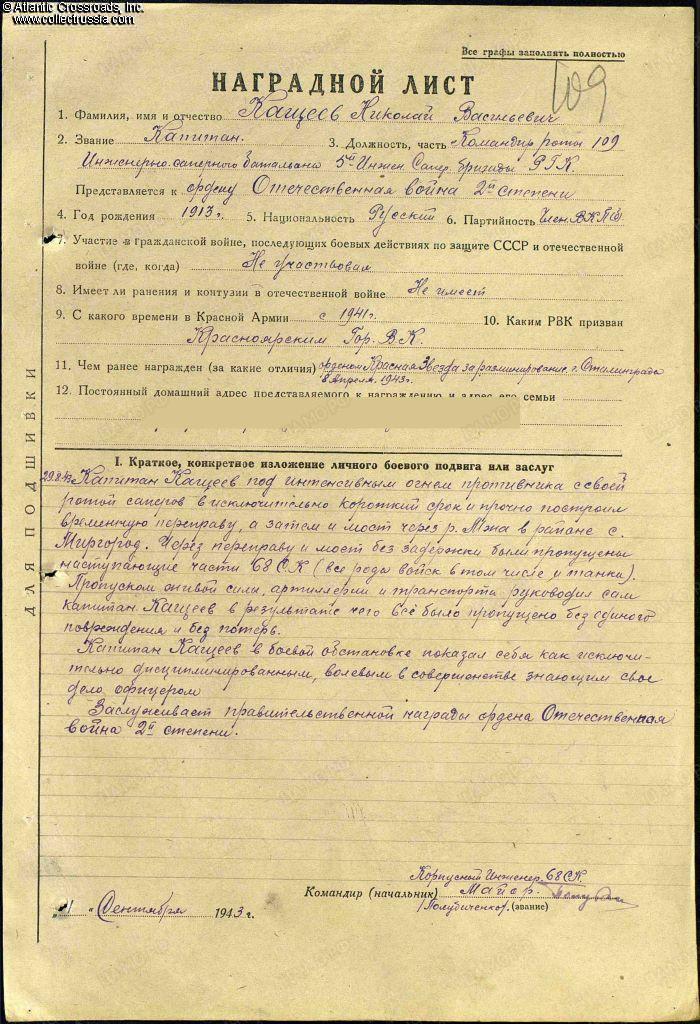 © Atlantic Crossroads, Inc.
www.collectrussia.com
Все графы заполнять полностью
109
НАГРАДНОЙ ЛИСТ
1. Фамилия, имя и отчество Кащеев Николай Васильевич
2. Звание Капитан. 3. Должность, часть Командир роты 109
Инженерно-саперного батальона 5й Инжен. Сапер. бригады РГК.
Представляется к ордену Отечественная война 2й степени
4. Год рождения 1913 г. 5. Национальность Русский 6. Партийность Член ВКП(б)
7. Участие в гражданской войне, последующих боевых действиях по защите СССР и отечественной
войне (где, когда) Не участвовал
8. Имеет ли ранения и контузии в отечественной войне Не имеет
9. С какого времени в Красной Армии с 1941 г. 10. Каким РВК призван
Красноярским Гор. ВК.
11. Чем ранее награжден (за какие отличия) орденом Красная Звезда за разминирование г. Сталинграда
в апреле 1943 г.
12. Постоянный домашний адрес представляемого к награждению и адрес его семьи
ДЛЯ ПОДШИВКИ
I. Краткое, конкретное изложение личного боевого подвига или заслуг
29.8.43 Капитан Кащеев под интенсивным огнем противника с своей
ротой саперов в исключительно короткий срок и прочно построил
временную переправу, а затем и мост через р. Мжа в районе с.
Миргород. Через переправу и мост без задержки были пропущены
наступающие части 68 СК (все рода войск в том числе и танки).
Пропуском живой силы, артиллерии и транспорта руководил сам
капитан Кащеев в результате чего всё было пропущено без единого
повреждения и без потерь.
Капитан Кащеев в боевой обстановке показал себя как исключи-
тельно дисциплинированным, волевым в совершенстве знающим свое
дело офицером
Заслуживает правительственной награды ордена Отечественная
война 2й степени.
Корпусный Инженер 68 СК
Командир (начальник) Майор
/Полубиченко/ (звание)
"1" Сентября 1943 г.